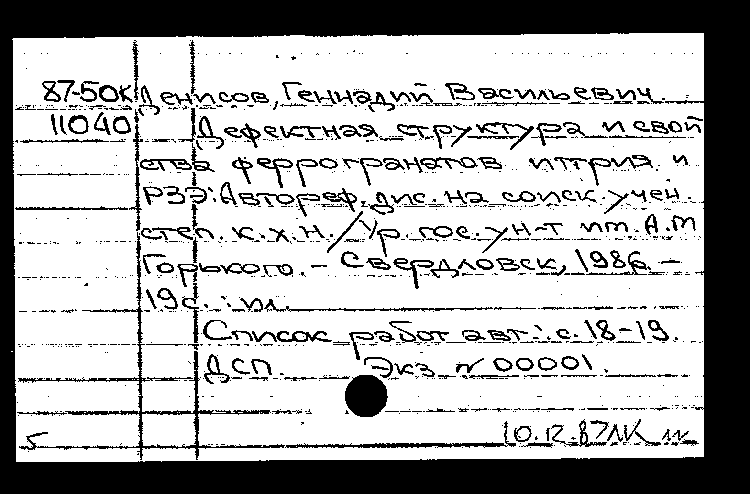 87-50к Денисов, Геннадий Васильевич.
11040 Дефектная структура и свой
ства феррогранатов иттрия и
РЗЭ: Автореф. дис. на соиск. учен.
степ. к.х.н. / Ур. гос. ун-т им. А.М
Горького. - Свердловск, 1986. -
19с. : ил.
Список работ авт.: с. 18-19.
ДСП. Экз. N 00001.
5 10.12.87